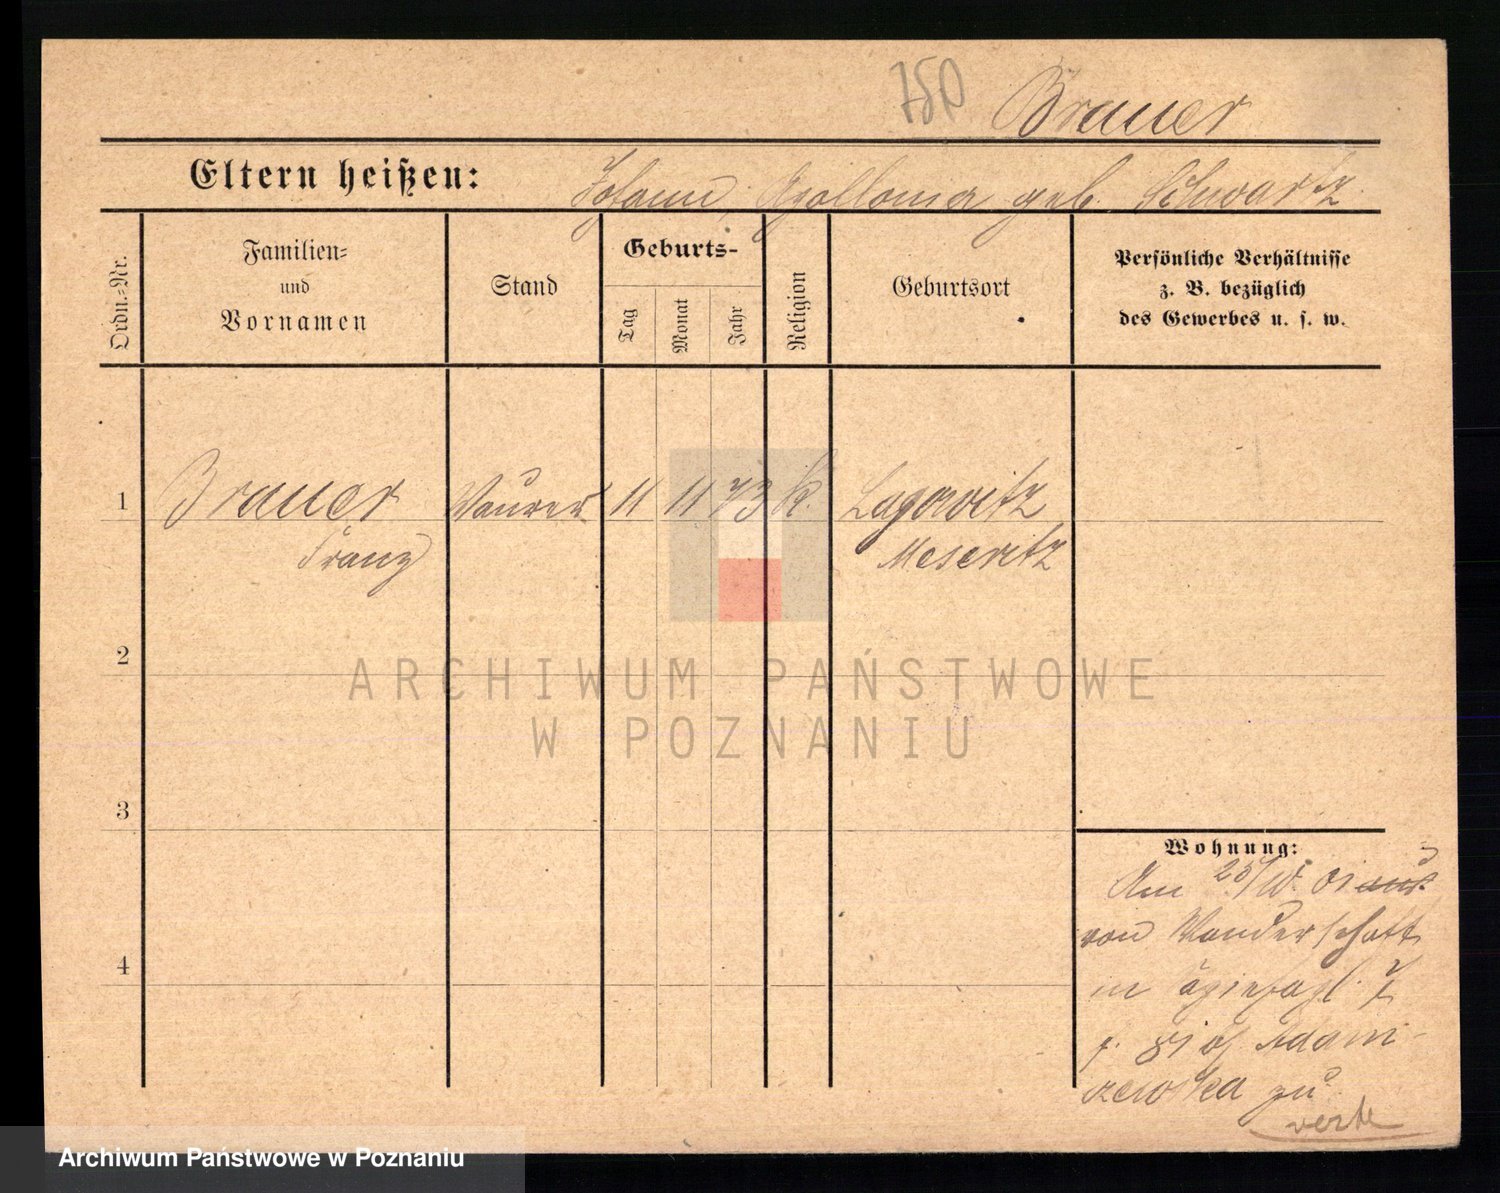 750 Brauer
Eltern heißen: Johann, Apollonia geb. Schwartz
Ordn.-Nr.
Familien-
und
Vornamen
Stand
Geburts-
Tag
Monat
Jahr
Religion
Geburtsort
Persönliche Verhältnisse
z. B. bezüglich
des Gewerbes u. s. w.
1 Brauer Maurer 11 11 73 k. Lagowitz
Franz Meseritz
2
ARCHIWUM PAŃSTWOWE
W POZNANIU
3
Wohnung:
Am 25/
von Wanderschaft
in
Adami-
zewska zu
verte
4
Archiwum Państwowe w Poznaniu